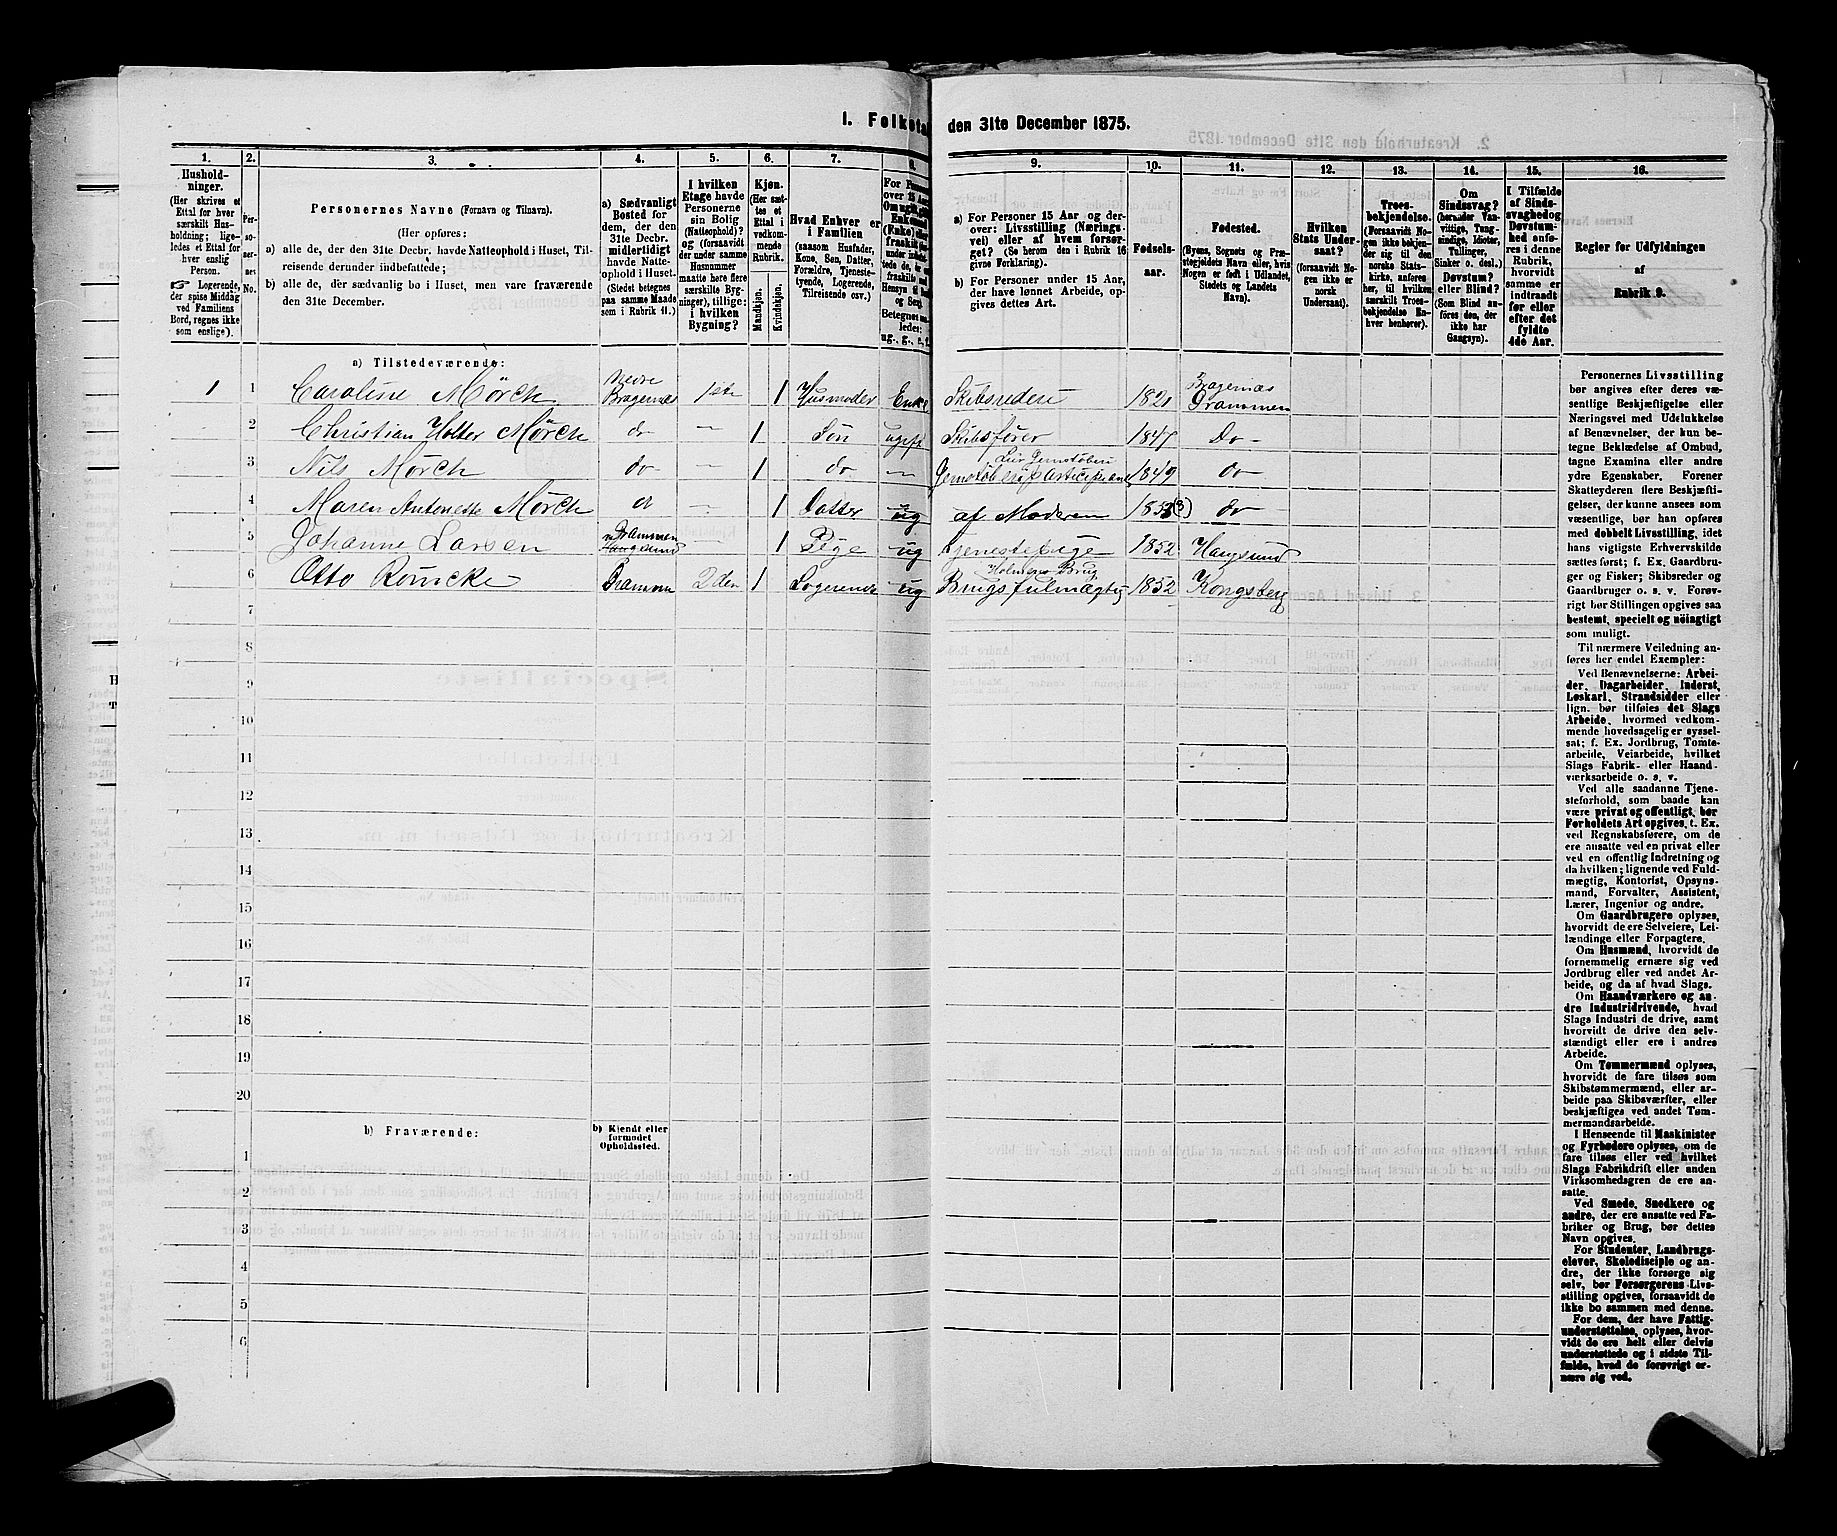 1. Folketal den 31te December 1875.
1. 2. 3. 4. 5. 6. 7. 8. 9. 10. 11. 12. 13. 14. 15. 16.
Hushold-
ninger.
(Her skrives et
Ettal for hver
særskilt Hus-
holdning; lige-
ledes et Ettal for
hver enslig
Person.
☞ Logerende,
der spise Middag
ved Familiens
Bord, regnes ikke
som enslige).
Per-
so-
ner-
nes
No.
Personernes Navne (Fornavn og Tilnavn).
(Her opføres:
a) alle de, der den 31te Decbr. havde Natteophold i Huset, Til-
reisende derunder indbefattede;
b) alle de, der sædvanlig bo i Huset, men vare fraværende
den 31te December.
a) Sædvanligt
Bosted for
dem, der den
31te Decbr.
midlertidigt
havde Natte-
ophold i Huset.
(Stedet betegnes
paa samme Maade
som i Rubrik 11.)
I hvilken
Etage havde
Personerne
sin Bolig
(Natteophold)?
og (forsaavidt
der under samme
Husnummer
maatte være flere
særskilte Byg-
ninger), tillige:
i hvilken
Bygning?
Kjøn.
(Her sæt-
tes et
Ettal i
vedkom-
mende
Rubrik.
Mandkjøn.
Kvindekjøn.
Hvad Enhver er
i Familien
(saasom Husfader,
Kone, Søn, Datter,
Forældre, Tjeneste-
tyende, Logerende,
Tilreisende osv.)
Betegnes
ledes:
ug., g., e., f.
a) For Personer 15 Aar og der-
over: Livsstilling (Nærings-
vei) eller af hvem forsør-
get? (Se herom den i Rubrik 16
givne Forklaring).
b) For Personer under 15 Aar,
der have lønnet Arbeide, op-
gives dettes Art.
Fødsels-
aar.
Fødested.
(Byens, Sognets og Præ-
stegjeldets Navn eller, hvis
Nogen er født i Udlandet,
Stedets og Landets
Navn).
Hvilken
Stats Under-
saat?
(forsaavidt No-
gen ikke er
norsk
Undersaat).
Troes-
bekjendelse.
(Forsaavidt No-
gen ikke bekjen-
der sig til den
norske Stats-
kirke, anføres
her, til hvilken
særskilt Troes-
bekjendelse En-
hver henhører).
Om
Sindssvag?
(herunder Van-
vittige, Tung-
sindige, Idioter,
Tullinger,
Sinker o. desl.)
Døvstum?
eller Blind?
(Som Blind an-
føres den, der
ikke har
Gangsyn).
I Tilfælde
af Sinds-
svaghed og
Døvstum-
hed anfø-
res i denne
Rubrik,
hvorvidt
samme er
indtraadt
før eller
efter det
fyldte
4de Aar.
Regler for Udfyldningen
af
Rubrik 9.
a) Tilstedeværende:
1 1 Caroline Mørch Nedre Bragernæs 1ste 1 Husmoder Enke Skibsrederi 1821 Bragernæs Drammen
2 Christian Holter Mørch do — 1 Søn ugift Skibsfører 1847 Do -
3 Nils Mørch do — 1 do — 1849 do
4 Maren Antonette Mørch do — 1 Datter ug af Moderen 185 (?) do
5 Johanne Larsen Drammen Haugsund — 1 Pige ug Tjenestepige 1852 Haugsund
6 Otto Röncke Drammen 2den 1 Logerende ug Holmens Brug Brugsfulmægtig 1852 Kongsberg
7
8
9
10
11
12
13
14
15
16
17
18
19
20
b) Fraværende:
b) Kjendt eller
formodet
Opholdssted.
1
2
3
4
5
6
Personernes Livsstilling
bør angives efter deres væ-
sentlige Beskjæftigelse eller
Næringsvei med Udelukkelse
af Benævnelser, der kun be-
tegne Beklædelse af Ombud,
tagne Examina eller andre
ydre Egenskaber. Forener
Skatteyderen flere Beskjæfti-
gelser, der kunne ansees som
væsentlige, bør han opføres
med dobbelt Livsstilling, idet
hans vigtigste Erhvervskilde
sættes først; f. Ex. Gaardbru-
ger og Fisker; Skibsreder og
Gaardbruger o. s. v. Forøv-
rigt bør Stillingen opgives saa
bestemt, specielt og nöiagtigt
som muligt.
Til nærmere Veiledning an-
føres her endel Exempler:
Ved Benævnelserne: Arbei-
der, Dagarbeider, Inderst,
Løskarl, Strandsidder eller
lign. bør tilføies det Slags
Arbeide, hvormed vedkom-
mende hovedsagelig er syssel-
sat; f. Ex. Jordbrug, Tomte-
arbeide, Veiarbeide, hvilket
Slags Fabrik- eller Haand-
værksarbeide o. s. v.
Ved alle saadanne Tjene-
steforhold, som baade kan
være privat og offentligt, bør
Forholdets Art opgives, t. Ex.
ved Regnskabsførere, om de
ere ansatte ved en privat eller
ved en offentlig Indretning og
da hvilken; lignende ved Fuld-
mægtig, Kontorist, Opsyns-
mand, Forvalter, Assistent,
Lærer, Ingeniør og andre.
Om Gaardbrugere oplyses,
hvorvidt de ere Selveiere, Lei-
lændinge eller Forpagtere.
Om Husmænd, hvorvidt de
fornemmelig ernære sig ved
Jordbrug eller ved andet Ar-
beide, og da af hvad Slags.
Om Haandværkere og an-
dre Industridrivende, hvad
Slags Industri de drive, samt
hvorvidt de drive den selv-
stændigt eller ere i andres
Arbeide.
Om Tømmermænd oplyses,
hvorvidt de fare tilsøs som
Skibstømmermænd, eller ar-
beide paa Skibsværfter, eller
beskjæftiges ved andet Tøm-
mermandsarbeide.
I Henseende til Maskinister
og Fyrbødere oplyses, om de
fare tilsøs eller ved hvilket
Slags Fabrikdrift eller anden
Virksomhedsgren de ere an-
satte.
Ved Smede, Snedkere og
andre, der ere ansatte ved Fa-
briker og Brug, bør dettes
Navn opgives.
For Studenter, Landbrugs-
elever, Skoledisciple og an-
dre, der ikke forsørge sig
selv, bør Forsørgerens Livs-
stilling opgives, forsaavidt de
ikke bo sammen med denne.
For dem, der have Fattig-
understøttelse, oplyses, hvor-
vidt de ere helt eller delvis
understøttede og i sidste Til-
fælde, hvad de forøvrigt er-
nære sig ved.